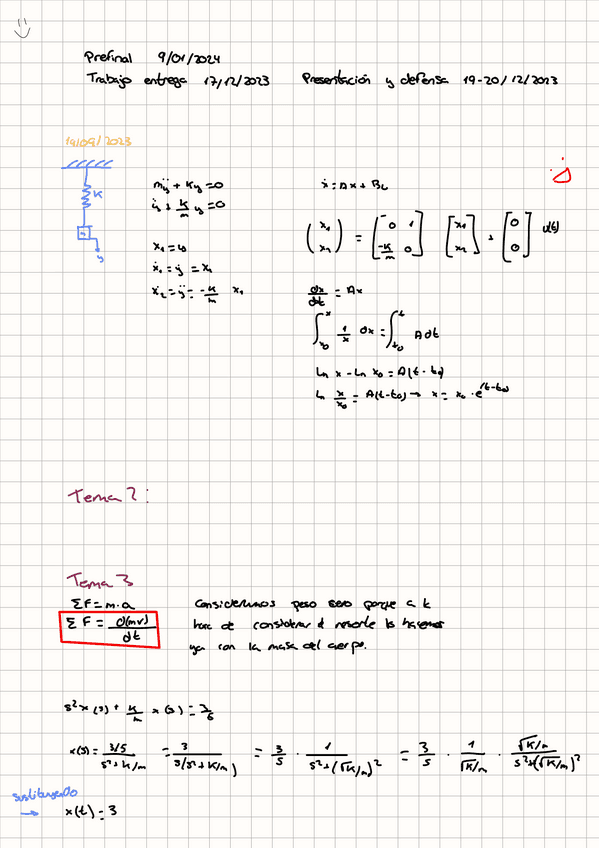 Prefinal 9/01/2024
Trabajo entrega 17/12/2023 Presentación y defensa 19-20/12/2023
19/09/2023
K
y
mÿ + Ky = 0
ÿ + K/m y = 0
x₁ = y
ẋ₁ = ẏ = x₂
ẋ₂ = ÿ = -K/m x₁
ẋ = Ax + Bu
(x₁ x₂) = [0 1; -K/m 0] [x₁ x₂] + [0 0] u(t)
dx/dt = Ax
∫_{x₀}^{x} 1/x dx = ∫_{t₀}^{t} A dt
Ln x - Ln x₀ = A(t - t₀)
Ln x/x₀ = A(t-t₀) → x = x₀ · e^(t-t₀)
Tema 2:
Tema 3
ΣF = m·a
ΣF = d(mv)/dt
Consideramos peso cero porque a
hora de considerar el resorte lo hacemos
ya con la masa del cuerpo.
s²x(s) + K/m x(s) = 3/s
x(s) = 3/s / s²+K/m = 3 / s(s²+K/m) = 3/s · 1 / s²+(√K/m)² = 3/s · 1/√K/m · √K/m / s²+(√K/m)²
sustituyendo
→ x(t) = 3